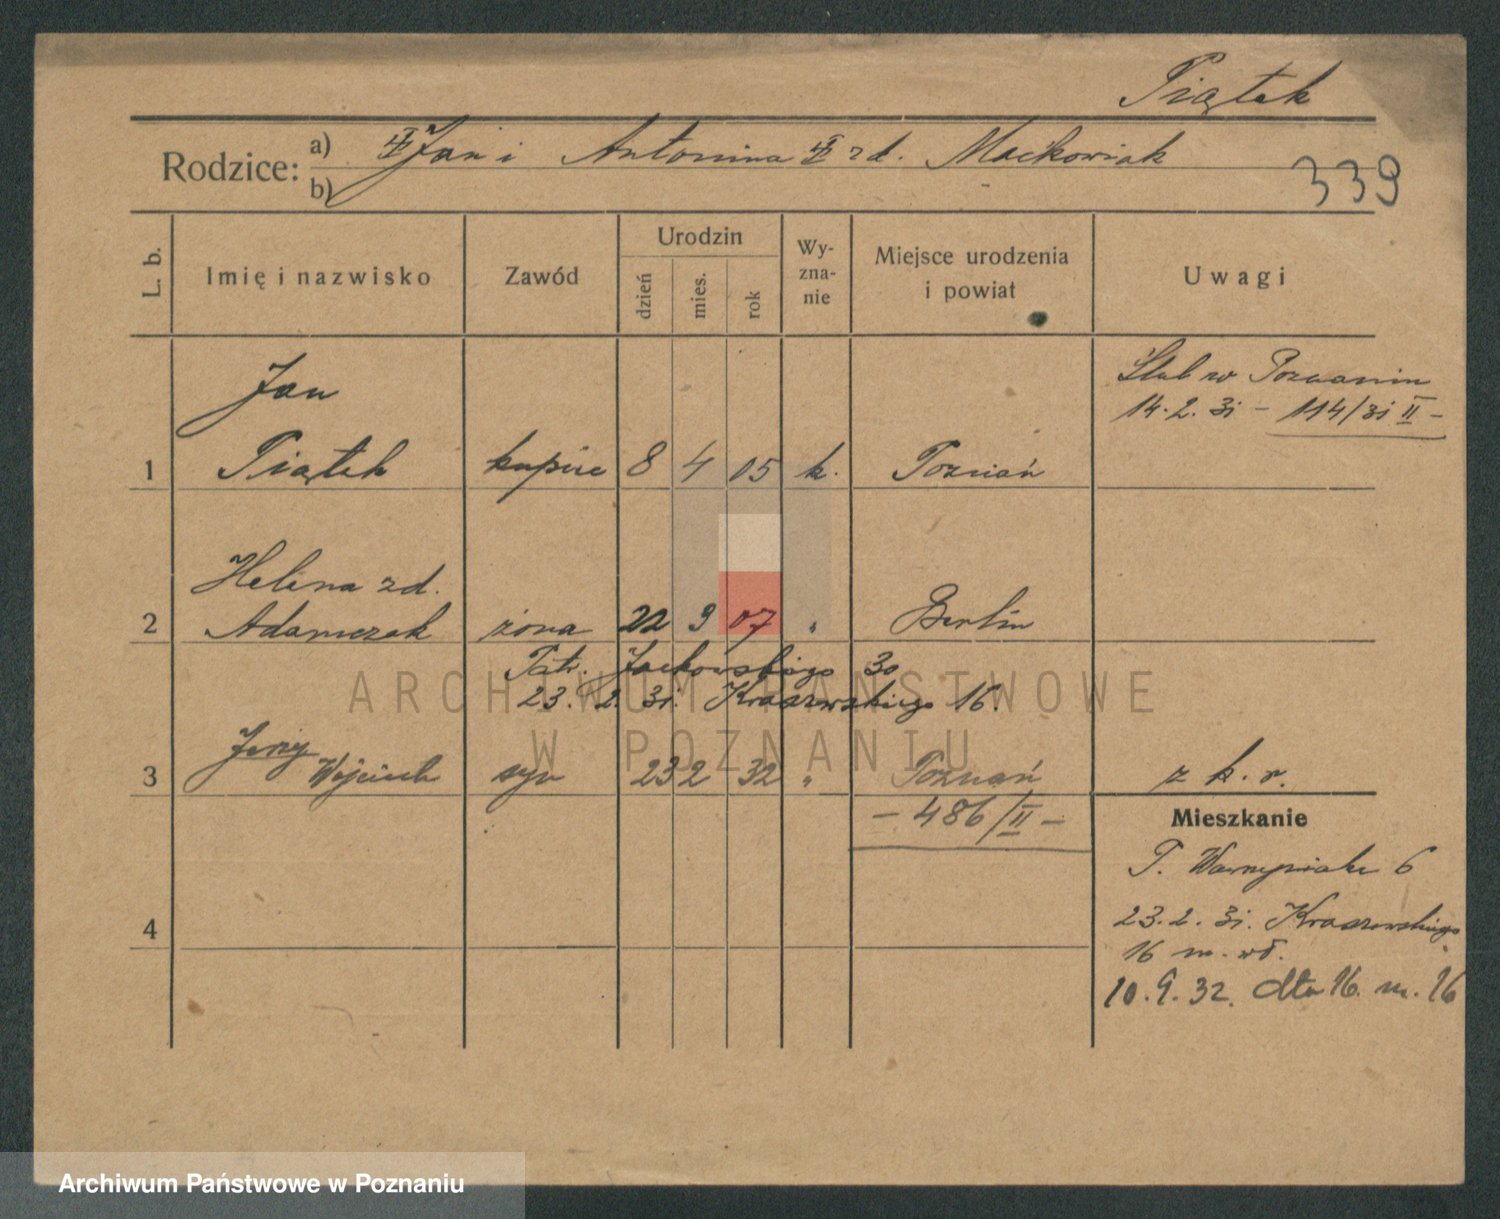 Piątek
Rodzice: a) Jan i Antonina zd. Maćkowiak
b)
339
L. b.
Imię i nazwisko
Zawód
Urodzin
dzień
mies.
rok
Wy-
zna-
nie
Miejsce urodzenia
i powiat
Uwagi
Jan
Ślub w Poznaniu
14.2.31 - 114/31 II -
1 Piątek kupiec 8 4 05 k. Poznań
Helena zd.
2 Adamczak żona 22 9 07 " Berlin
Patr. Jackowskiego 30
23. 2. 31. Kraszewskiego 16.
ARCHIWUM PAŃSTWOWE
W POZNANIU
Jerzy
3 Wojciech syn 23 2 32 " Poznań z k. r.
- 486/II -
Mieszkanie
P. Wawrzyniaka 6
23. 2. 31. Kraszewskiego
16 m. wł.
4
10. 9. 32. dto 16. m. 16
Archiwum Państwowe w Poznaniu